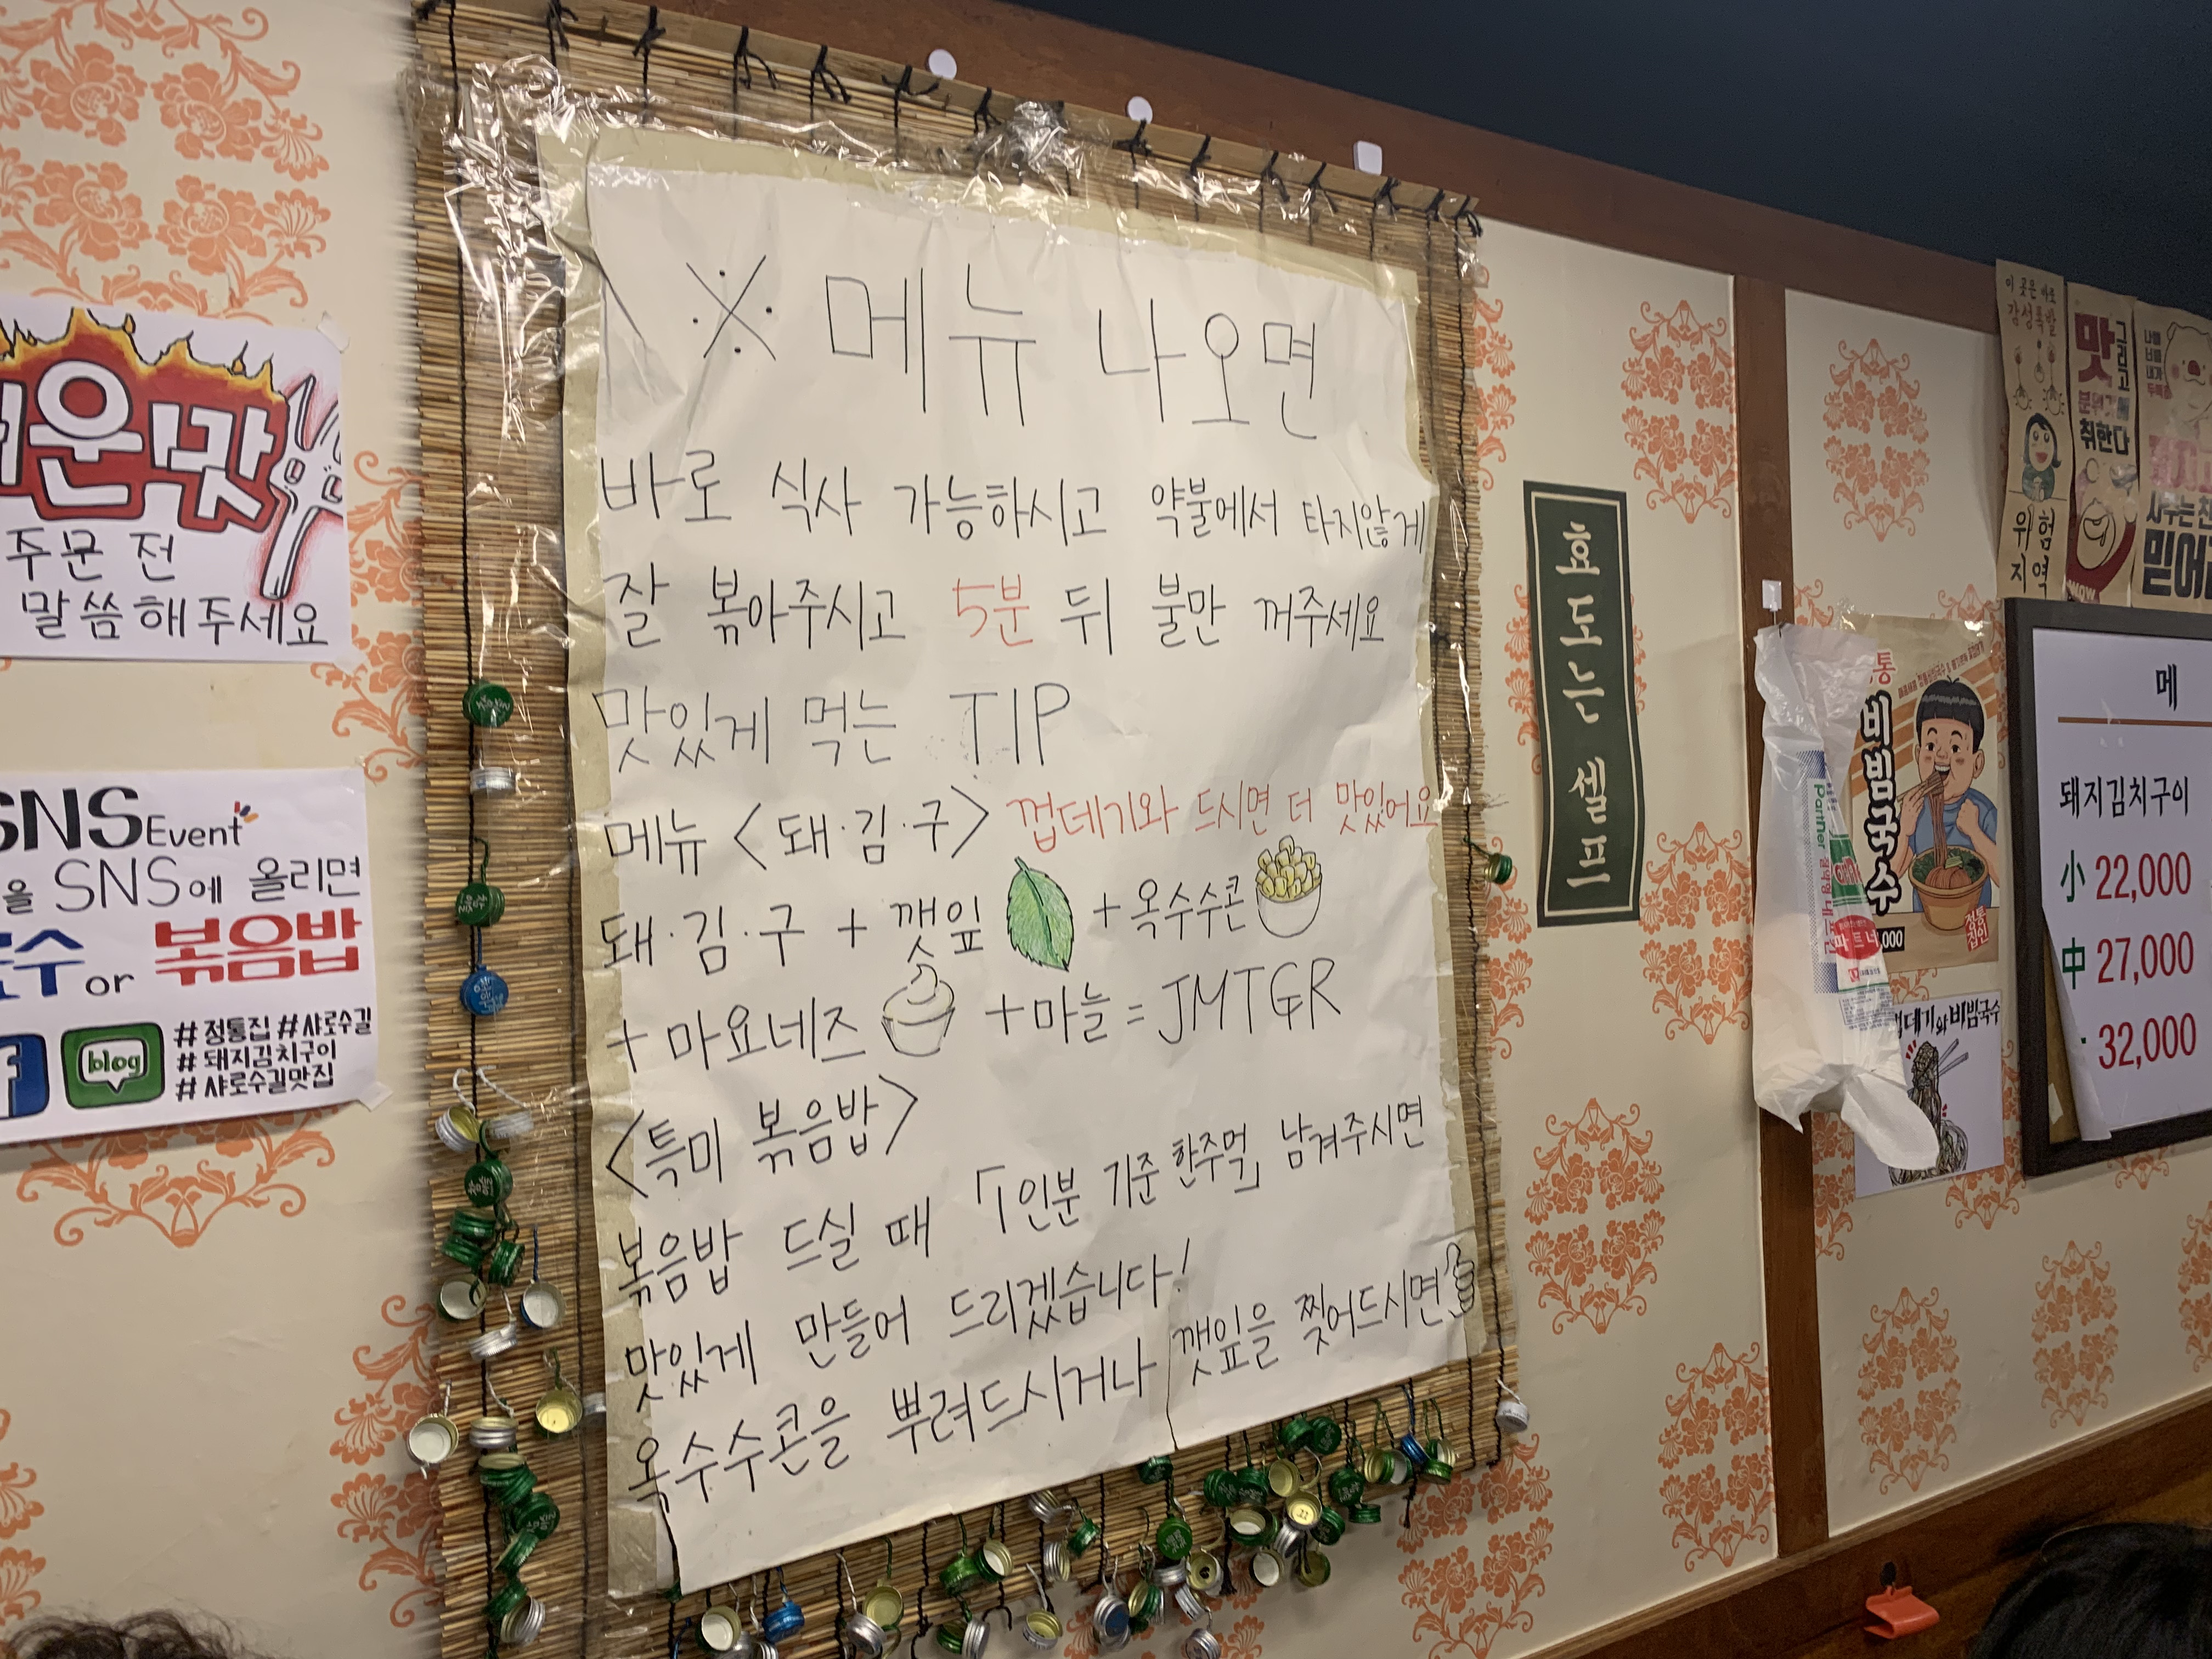 운맛
주문 전
말씀해주세요
SNS Event
을 SNS에 올리면
수 or 볶음밥
blog
#정통집 #샤로수길
#돼지김치구이
#샤로수길맛집
※ 메뉴 나오면
바로 식사 가능하시고 약불에서 타지않게
잘 볶아주시고 5분 뒤 불만 꺼주세요
맛있게 먹는 TIP
메뉴 <돼·김·구> 껍데기와 드시면 더 맛있어요
돼·김·구 + 깻잎 + 옥수수콘
+ 마요네즈 + 마늘 = JMTGR
<특미 볶음밥>
볶음밥 드실 때 「1인분 기준 한주먹」 남겨주시면
맛있게 만들어 드리겠습니다!
옥수수콘을 뿌려드시거나 깻잎을 찢어드시면
효도는 셀프
이 곳은 바로
감성폭발
위험
지역
맛
그리고
분위기에
취한다
WOW
믿어
통
비빔국수
정통집인
,000
Partner
파트너
데기와 비빔국수
메
돼지김치구이
小 22,000
中 27,000
32,000